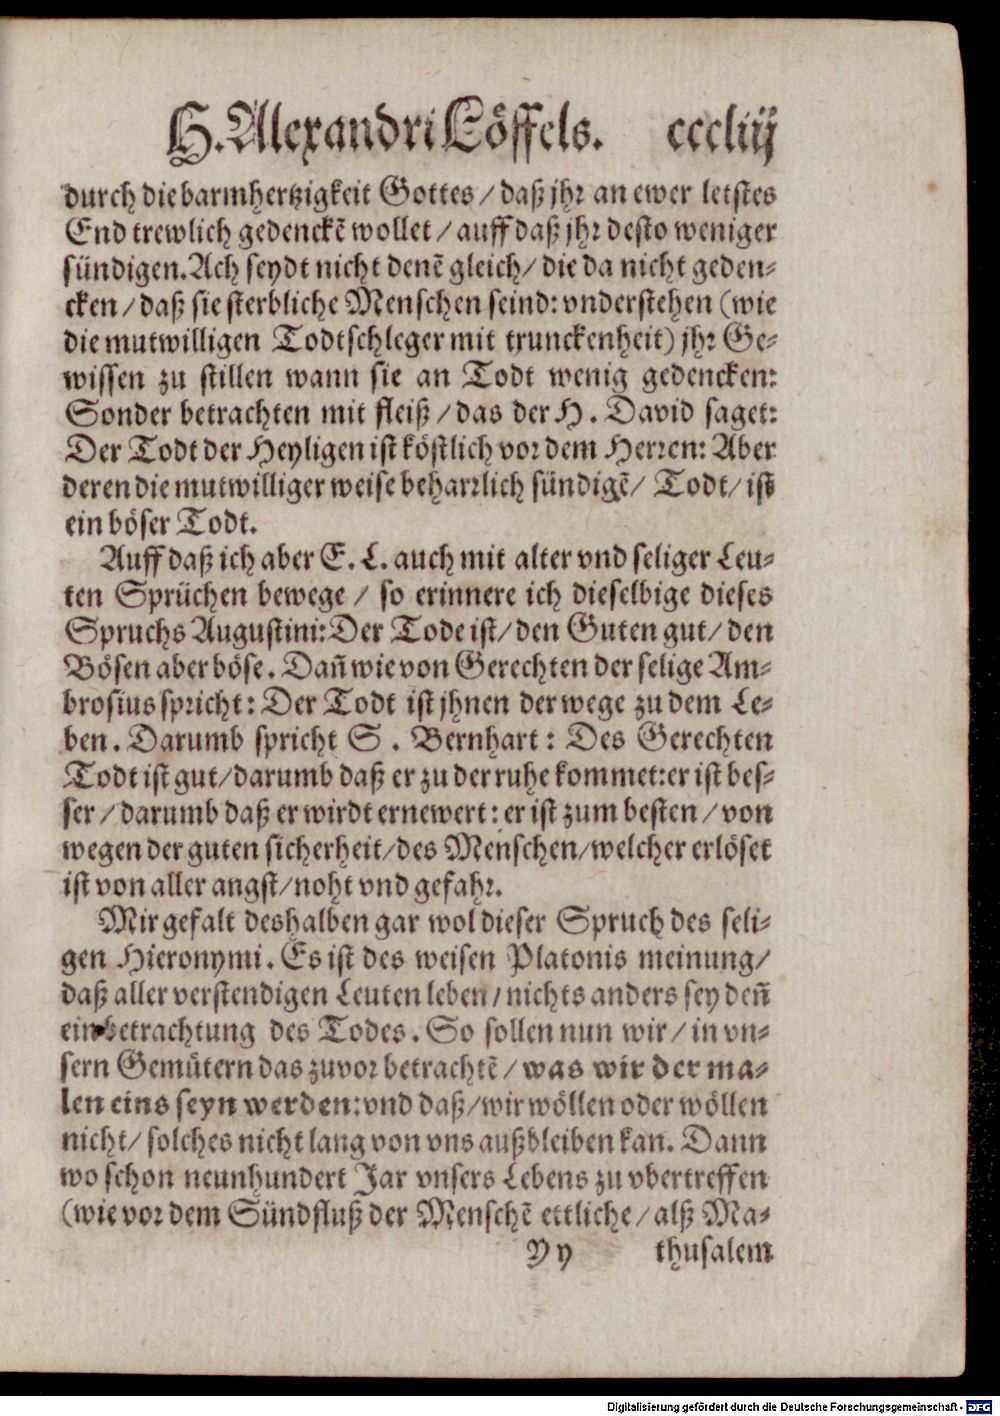 H. Alexandri Löffels. cccliij
durch die barmhertzigkeit Gottes / daß jhr an ewer letstes
End trewlich gedenckē wollet / auff daß jhr desto weniger
sündigen. Ach seydt nicht denē gleich / die da nicht geden-
cken / daß sie sterbliche Menschen seind: vnderstehen (wie
die mutwilligen Todtschleger mit trunckenheit) jhr Ge-
wissen zu stillen wann sie an Todt wenig gedencken:
Sonder betrachten mit fleiß / das der H. David saget:
Der Todt der Heyligen ist köstlich vor dem Herren: Aber
deren die mutwilliger weise beharrlich sündigē / Todt / ist
ein böser Todt.
Auff daß ich aber E. L. auch mit alter vnd seliger Leu-
ten Sprüchen bewege / so erinnere ich dieselbige dieses
Spruchs Augustini: Der Tode ist / den Guten gut / den
Bösen aber böse. Dañ wie von Gerechten der selige Am-
brosius spricht: Der Todt ist jhnen der wege zu dem Le-
ben. Darumb spricht S. Bernhart: Des Gerechten
Todt ist gut / darumb daß er zu der ruhe kommet: er ist bes-
ser / darumb daß er wirdt ernewert: er ist zum besten / von
wegen der guten sicherheit / des Menschen / welcher erlöset
ist von aller angst / noht vnd gefahr.
Mir gefalt deshalben gar wol dieser Spruch des seli-
gen Hieronymi. Es ist des weisen Platonis meinung /
daß aller verstendigen Leuten leben / nichts anders sey deñ
ein betrachtung des Todes. So sollen nun wir / in vn-
sern Gemütern das zuvor betrachtē / was wir der ma-
len eins seyn werden: vnd daß / wir wöllen oder wöllen
nicht / solches nicht lang von vns außbleiben kan. Dann
wo schon neunhundert Jar vnsers Lebens zu vbertreffen
(wie vor dem Sündfluß der Menschē ettliche / alß Ma-
Yy thusalem
Digitalisierung gefördert durch die Deutsche Forschungsgemeinschaft - DFG